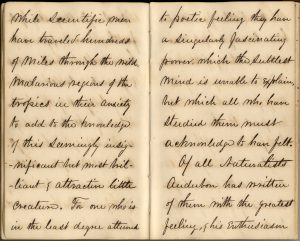 While Scientific men
have traveled hundreds
of Miles through the wild
Malarious regions of the
tropics in their anxiety
to add to the knowledge
of this Seemingly insig-
-nificant but most bril-
-liant & attractive little
creature. For one who is
in the least degree attuned
to poetic feeling they have
a singularly fascinating
power, which the subtlest
Mind is unable to explain
but which all who have
studied them must
acknowledge to have felt.
Of all Naturalists
Audubon has written
of them with the greatest
feeling, & his Enthusiasm